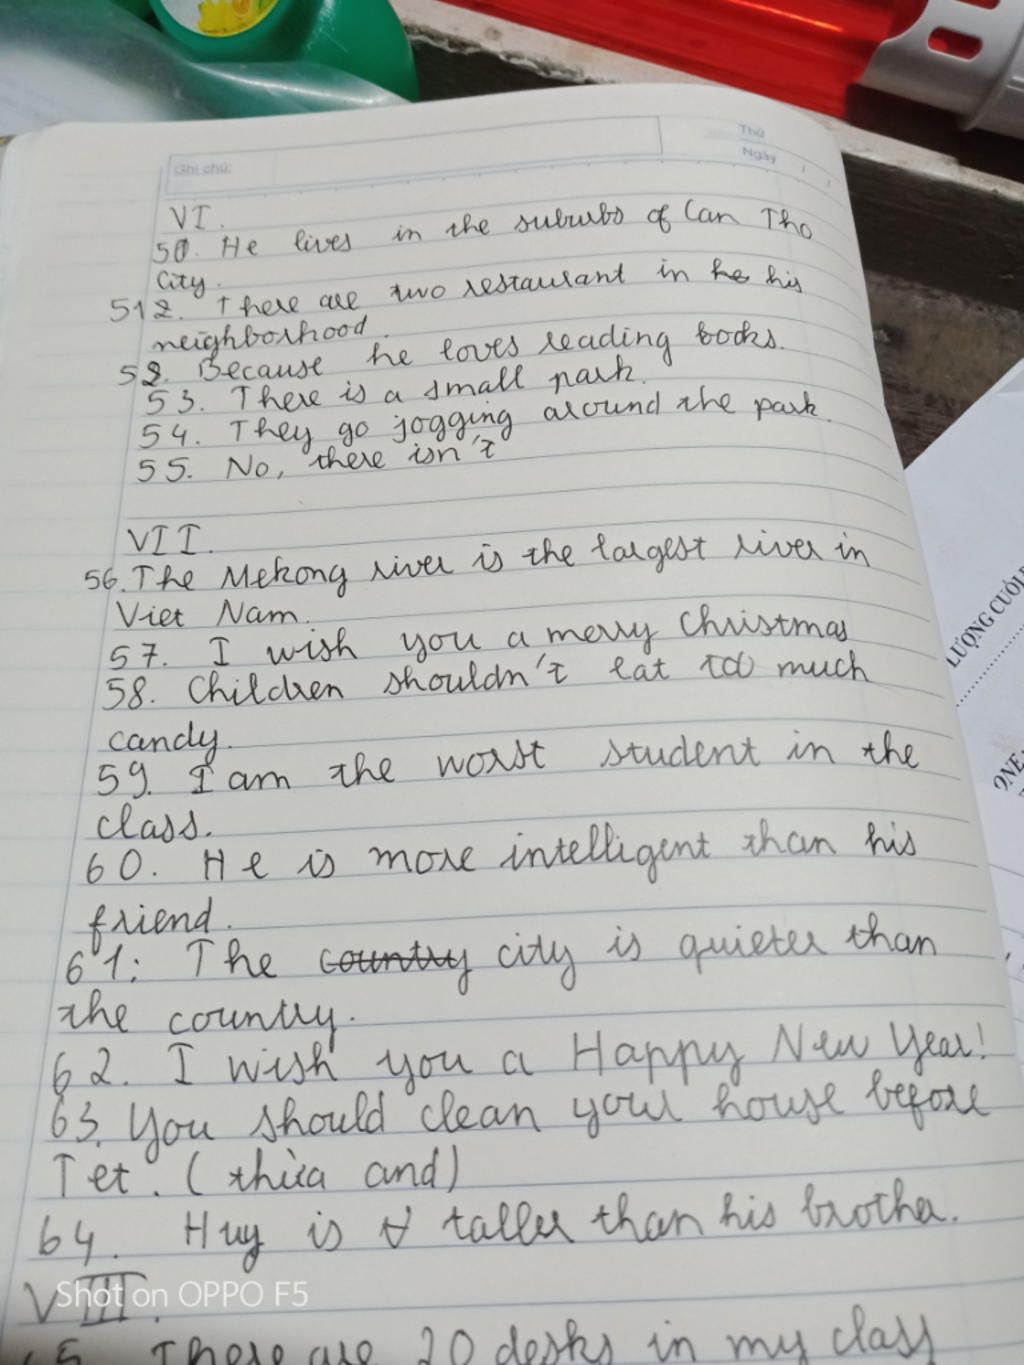 Thứ
Ghi chú:
Ngày
VI.
50. He lives in the suburbs of Can Tho
City.
512. There are two restaurant in he his
neighborhood.
52. Because he loves reading books.
53. There is a small park.
54. They go jogging around the park.
55. No, there isn't
VII.
56. The Mekong river is the largest river in
Viet Nam.
57. I wish you a merry Christmas
58. Children shouldn't eat too much
candy.
59. I am the worst student in the
class.
60. He is more intelligent than his
friend.
61: The country city is quieter than
the country.
62. I wish you a Happy New Year!
63. You should clean your house before
Tet. (thừa and)
64. Huy is taller than his brother.
VIII.
Shot on OPPO F5
There are 20 desks in my class
LƯỢNG CUỐI